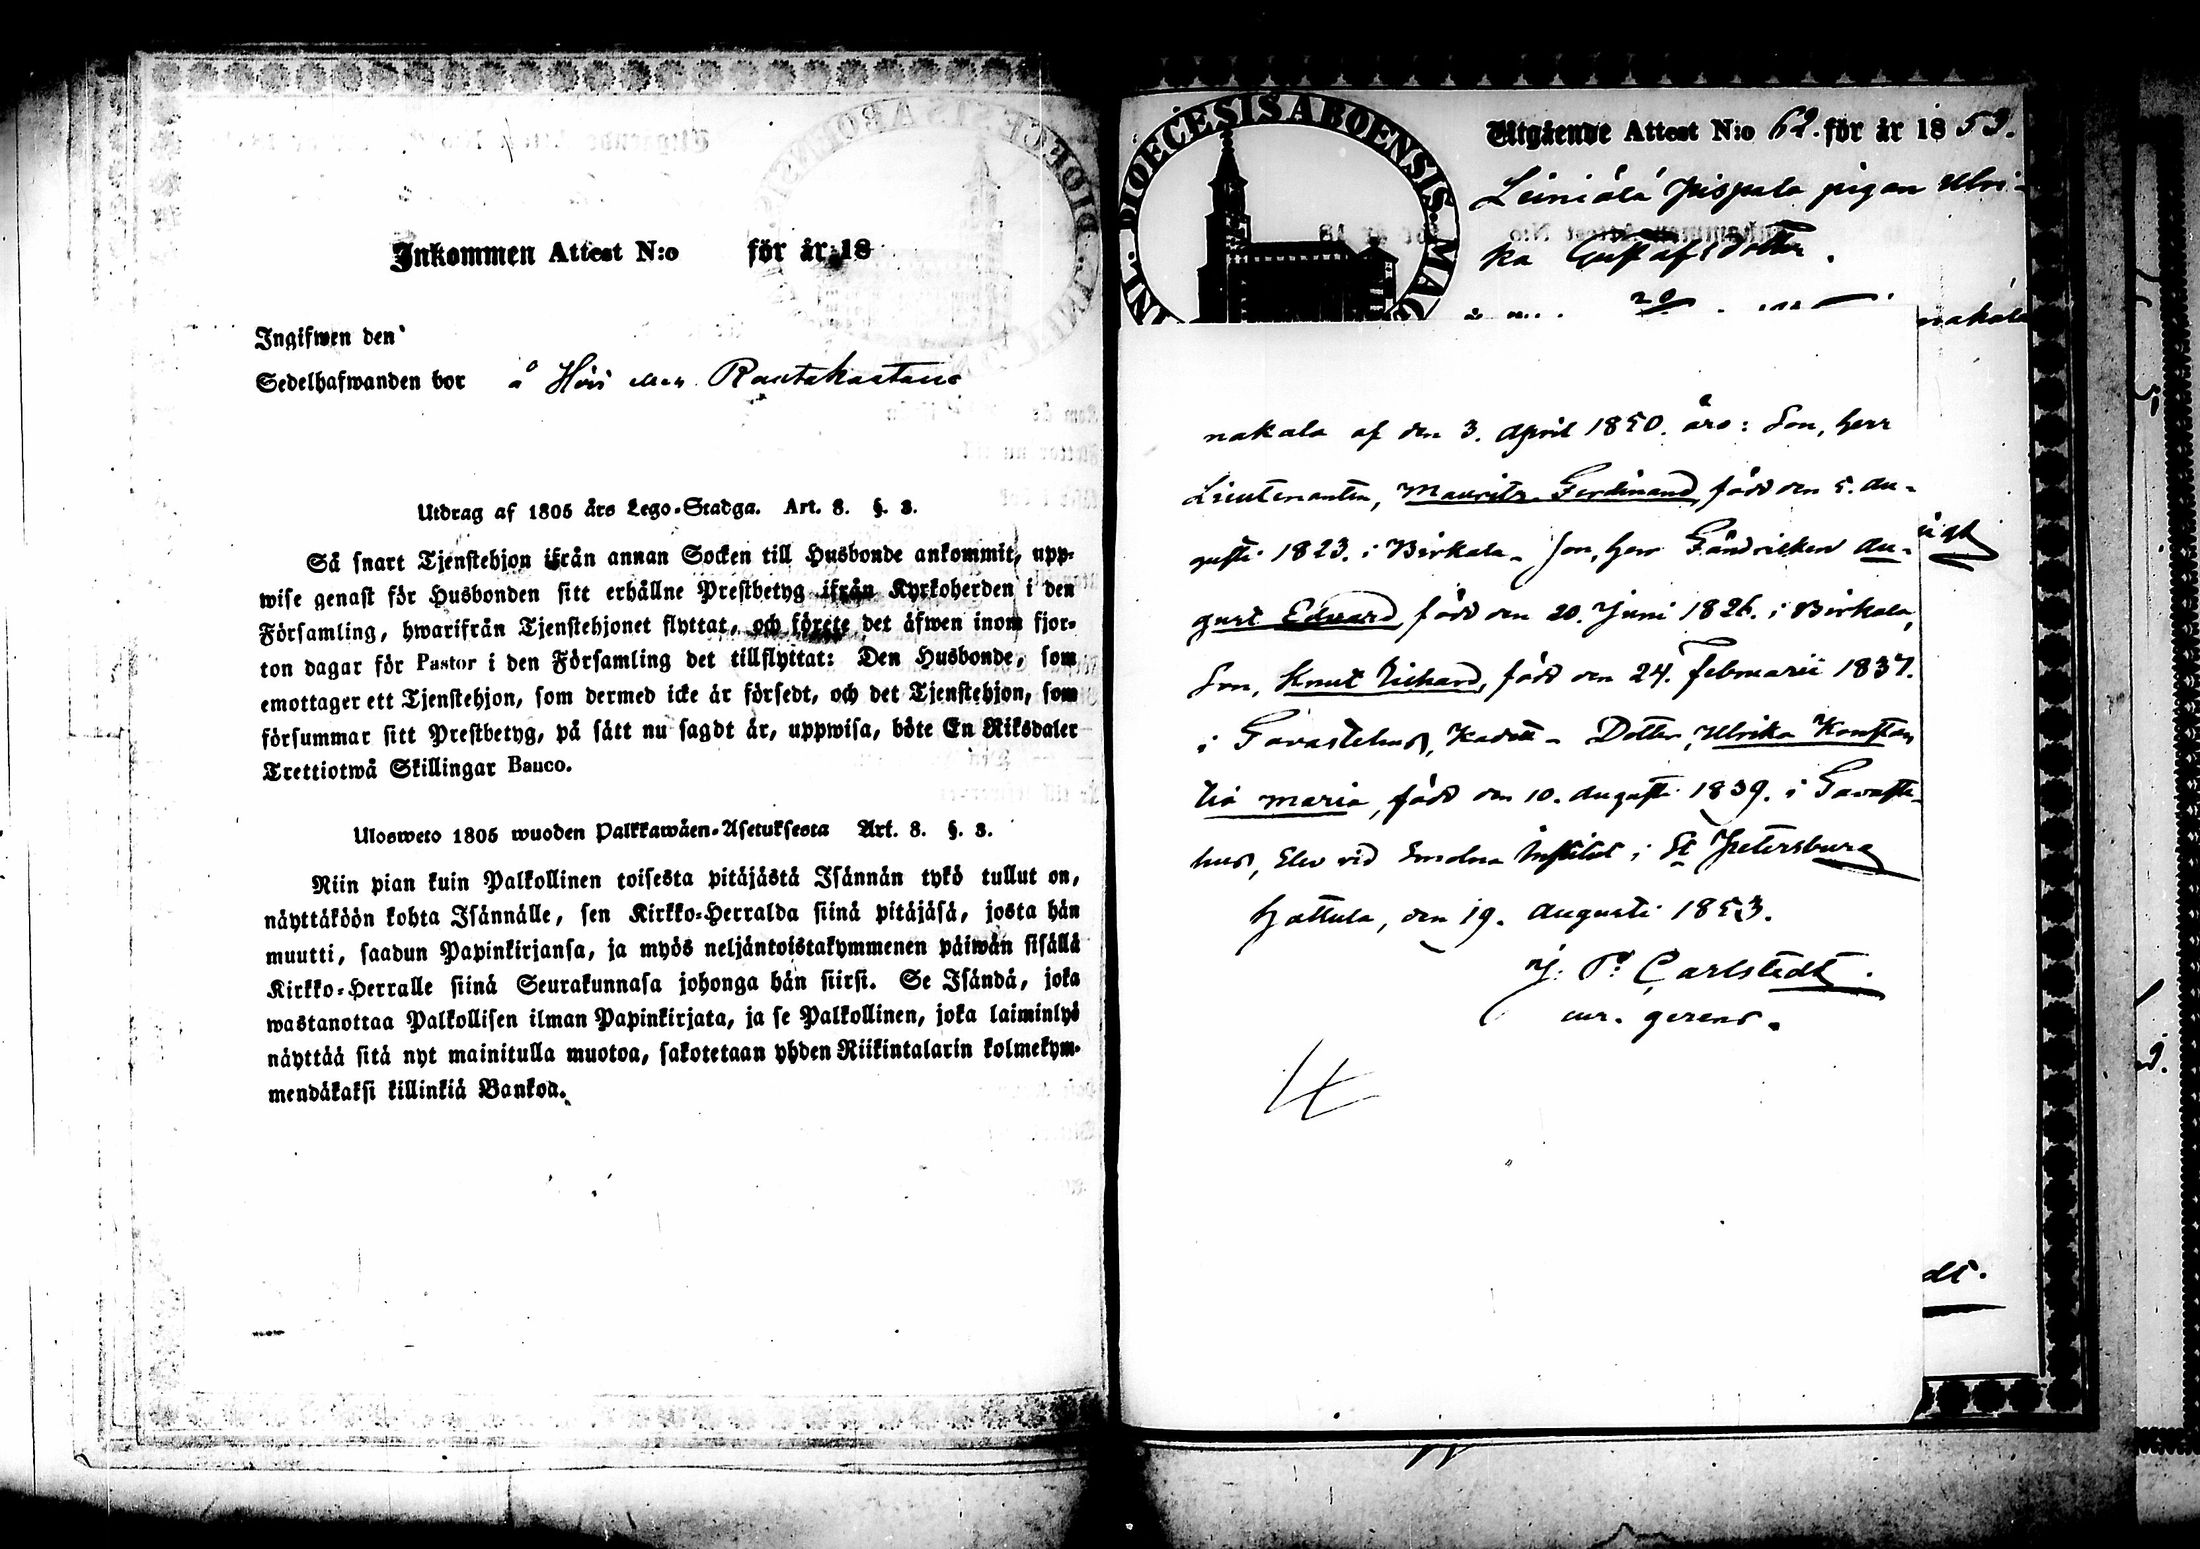 Inkommen Attest N:o för år 18
Ingifwen den
Sedelhafwanden bor å Rautakaatans
Utdrag af 1805 års Lego-Stadga. Art. 8. §. 3.
Så snart Tjenstehjon ifrån annan Socken till Husbonde ankommit, upp-
wise genast för Husbonden sitt erhållne Prestbetyg ifrån Kyrkoherden i den
Församling, hwarifrån Tjenstehjonet flyttat, och förete det äfwen inom fjor-
ton dagar för Pastor i den Församling det tillflyttat: Den Husbonde, som
emottager ett Tjenstehjon, som dermed icke är försedt, och det Tjenstehjon, som
försummar sitt Prestbetyg, på sätt nu sagdt är, uppwisa, böte En Riksdaler
Trettiotwå Skillingar Banco.
Ulosweto 1805 wuoden Palkkawäen-Asetuksesta Art. 8. §. 3.
Niin pian kuin Palkollinen toisesta pitäjästä Isännän tykö tullut on,
näyttäköön kohta Isännälle, sen Kirkko-Herralda siinä pitäjäsä, josta hän
muutti, saadun Papinkirjansa, ja myös neljäntoistakymmenen päiwän sisällä
Kirkko-Herralle siinä Seurakunnasa johonga hän siirsi. Se Isändä, joka
wastanottaa Palkollisen ilman Papinkirjata, ja se Palkollinen, joka laiminlyö
näyttää sitä nyt mainitulla muotoa, sakotetaan yhden Riikintalarin kolmekym-
mendäkaksi killinkiä Bankoa.
DIOECESIS ABOENSIS. MAG
Utgående Attest N:o 62. för år 1853.
Leiniälä Pispala pigan Ulri-
ka Gustafsdotter.
nakala
nakala af den 3. April 1850. års: Son, herr
Lieutenanten, Mauritz Ferdinand, född den 5. Au-
gusti 1823. i Birkala - Son, herr Fändriken Au-
gust Edvard, född den 20. Juni 1826. i Birkala,
Son, Knut Richard, född den 24. Februarii 1837.
i Tavastehus, Kadett - Dotter, Ulrika Konstan
tia Maria, född den 10. Augusti 1839. i Tavaste-
hus, Elev vid Smolna Institut i St Petersburg
Hattula, den 19. Augusti 1853.
J. P. Carlstedt.
cur. gerens.
dt.